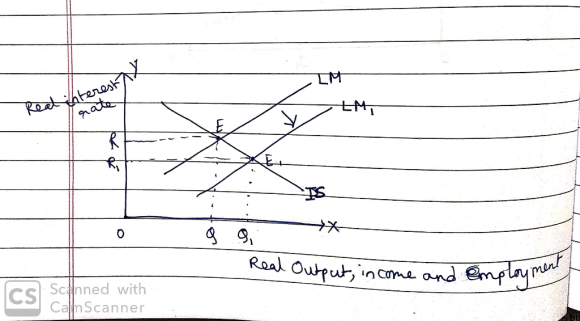 Y
LM
Real interest
rate
LM₁
E
R
R₁
E₁
IS
X
O
Q
Q₁
Real Output, income and employment
CS
Scanned with
CamScanner